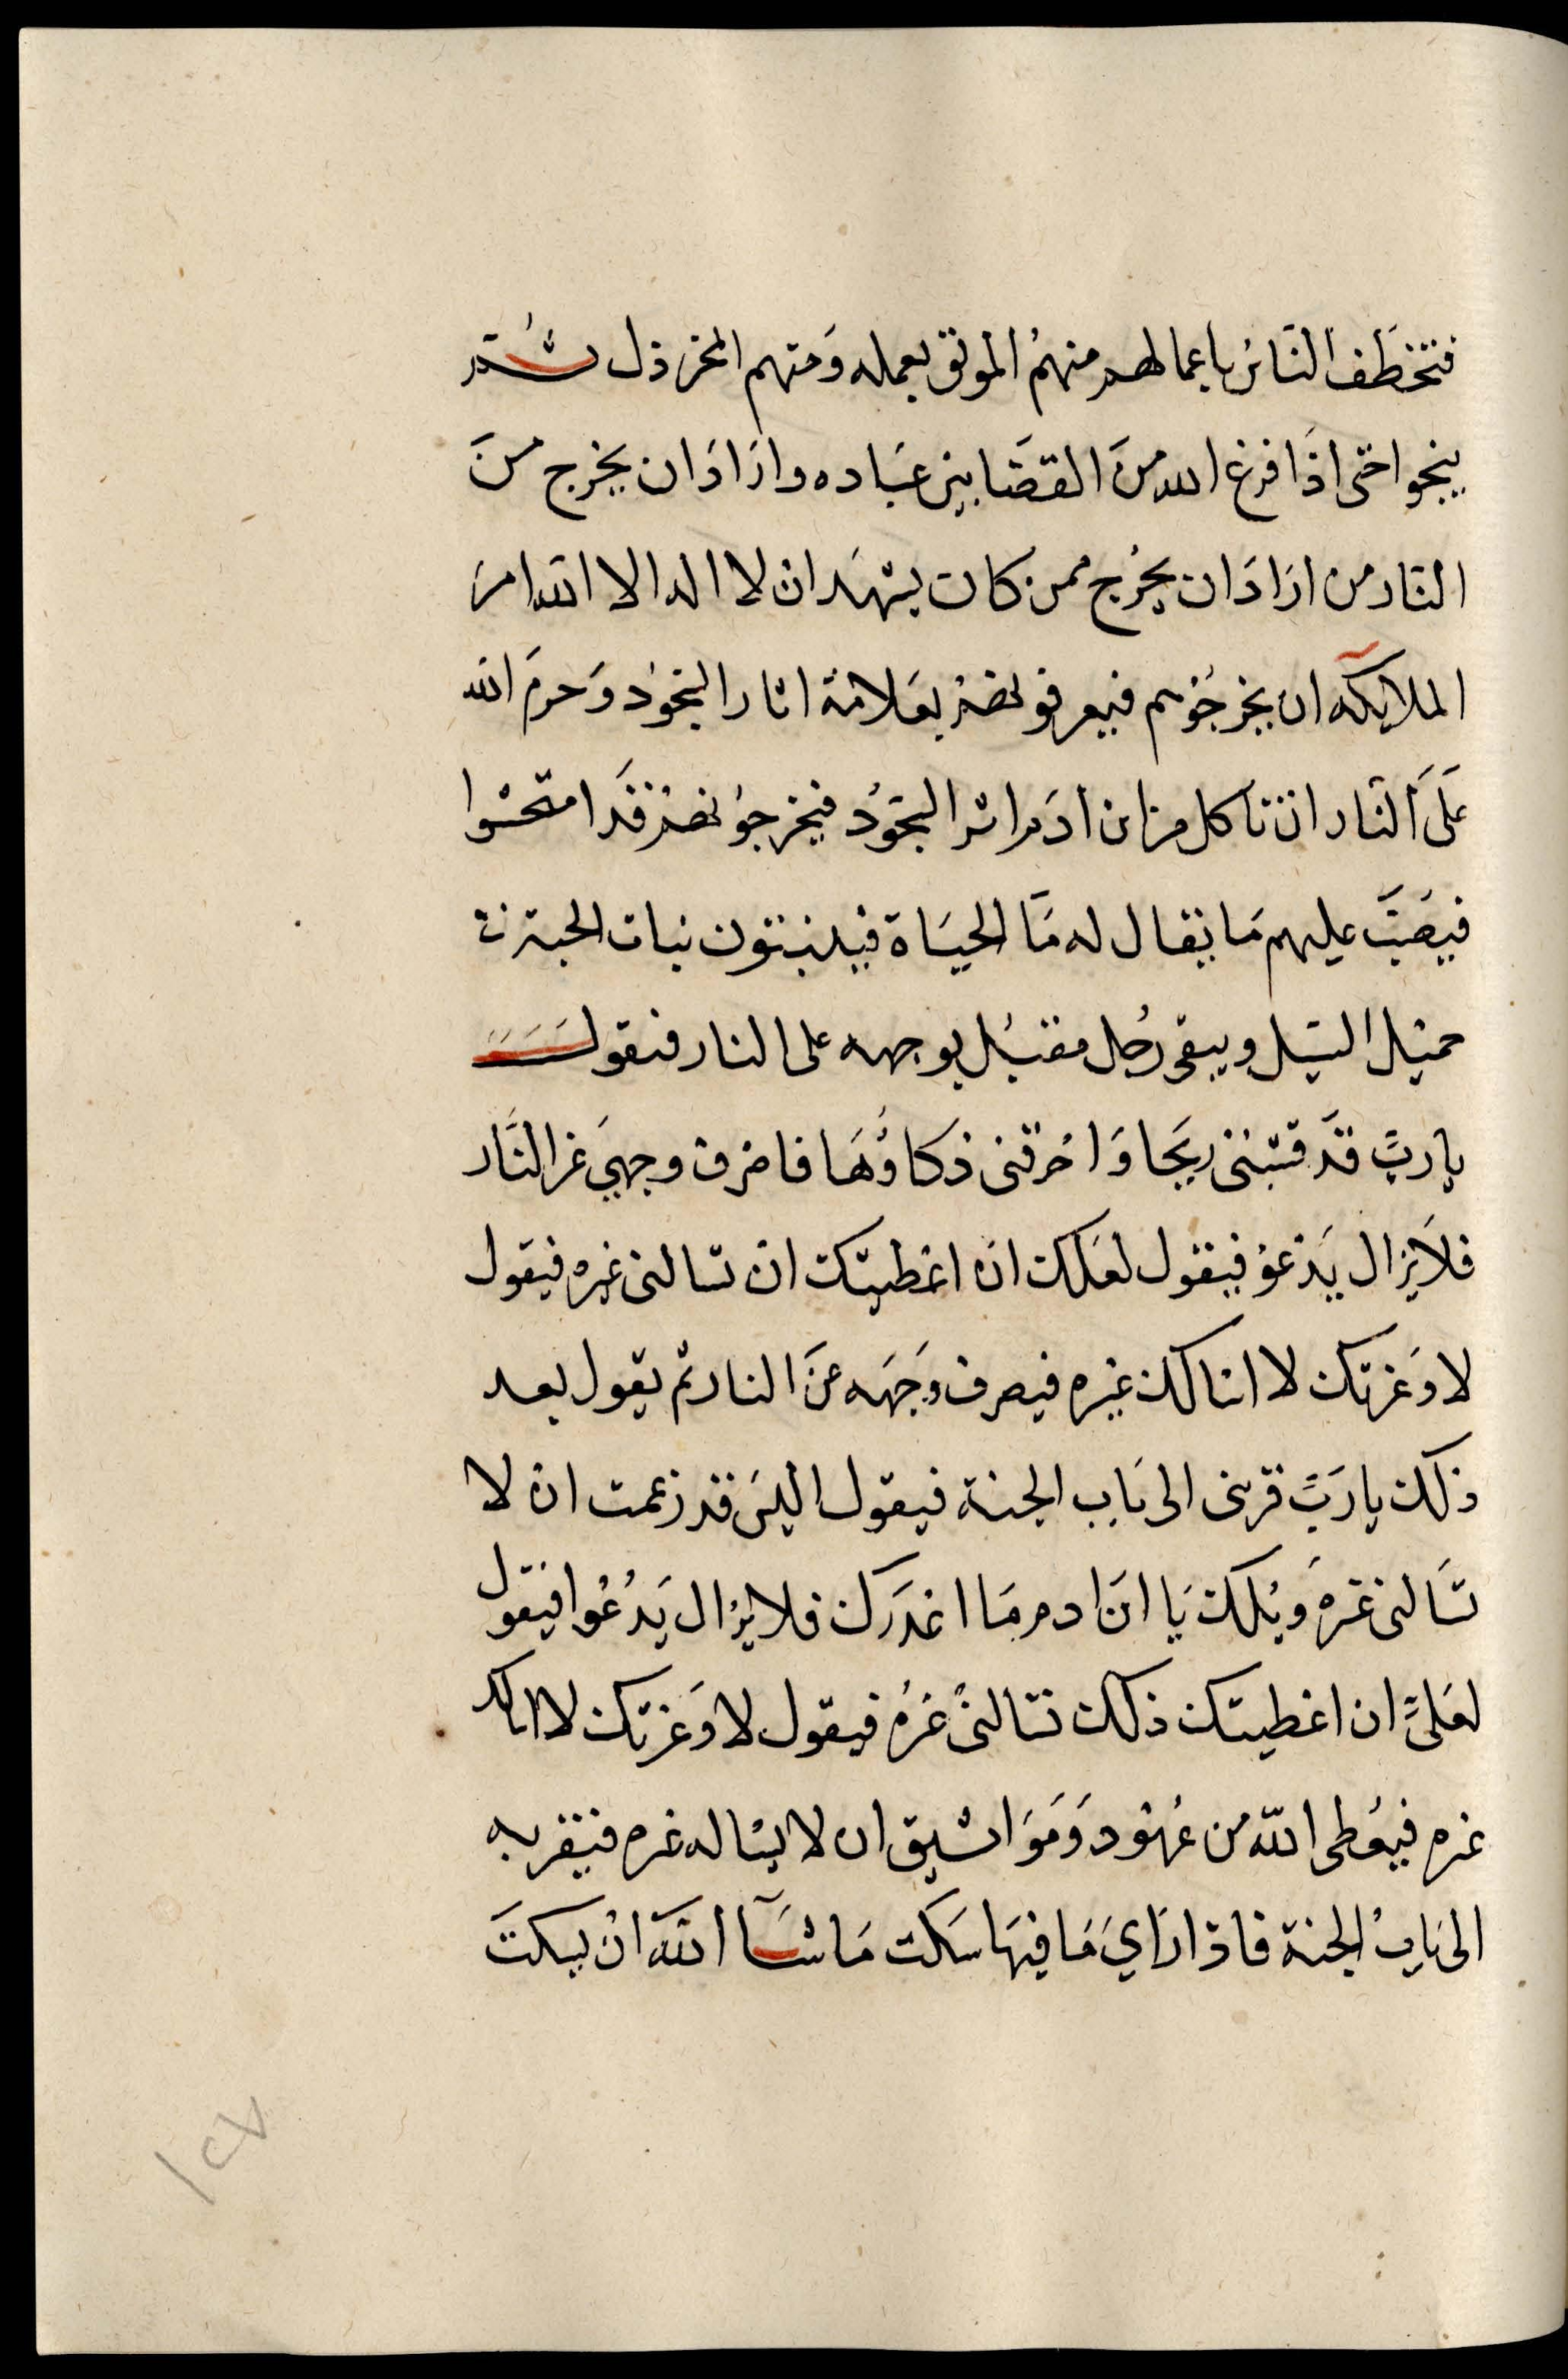 فتخطف الناس باعمالهم منهم الموبق بعمله ومنهم المخرذل ثم
ينجوا حتى اذا فرغ الله من القضا بين عباده واراد ان يخرج من
النار من اراد ان يخرج ممن كان يشهد ان لا اله الا الله امر
الملايكه ان يخرجوهم فيعرفونهم بعلامة اثار السجود وحرم الله
على النار ان تاكل من ابن ادم اثر السجود فيخرجونهم قد امتحشوا
فيصب عليهم ما يقال له ما الحياة فينبتون نبات الحبة في
حميل السيل ويبقى رجل مقبل بوجهه على النار فيقول
يا رب قد قشبني ريحها واحرقني ذكاؤها فاصرف وجهي عن النار
فلا يزال يدعو فيقول لعلك ان اعطيتك ان تسالني غيره فيقول
لا وعزتك لا اسالك غيره فيصرف وجهه عن النار ثم يقول بعد
ذلك يا رب قربني الى باب الجنة فيقول اليس قد زعمت ان لا
تسالني غيره ويلك يا ابن ادم ما اغدرك فلا يزال يدعوا فيقول
لعلي ان اعطيتك ذلك تسالني غيره فيقول لا وعزتك لا اسالك
غيره فيعطى الله من عهود ومواثيق ان لا يساله غيره فيقربه
الى باب الجنة فاذا راي ما فيها سكت ما شآ الله ان يسكت
١٢٧